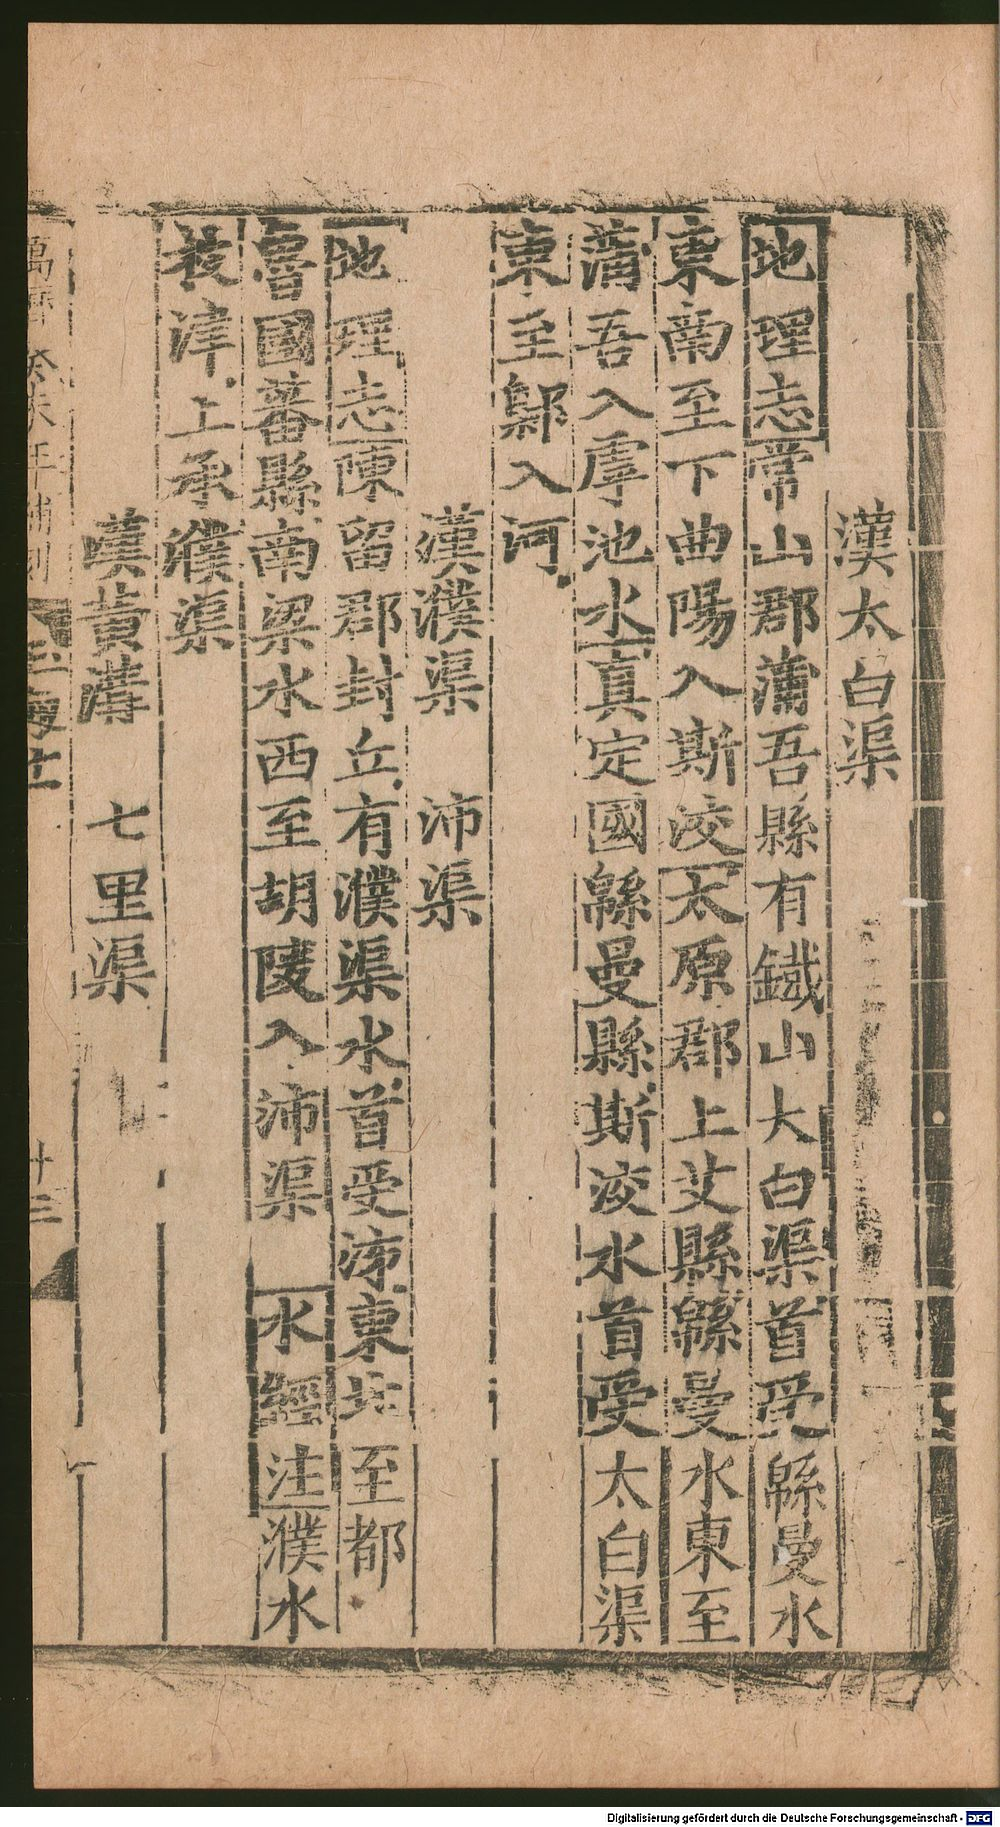 漢太白渠
地理志常山郡蒲吾縣有鐵山大白渠首受緜曼水
東南至下曲陽入斯洨太原郡上艾縣緜曼水東至
蒲吾入虖池水真定國緜曼縣斯洨水首受太白渠
東至鄡入河
漢濮渠　沛渠
地理志陳留郡封丘有濮渠水首受泲東北至都
魯國蕃縣南梁水西至胡陵入沛渠　水經注濮水
枝津上承濮渠
漢黃溝　七里渠
十三
Digitalisierung gefördert durch die Deutsche Forschungsgemeinschaft - DFG